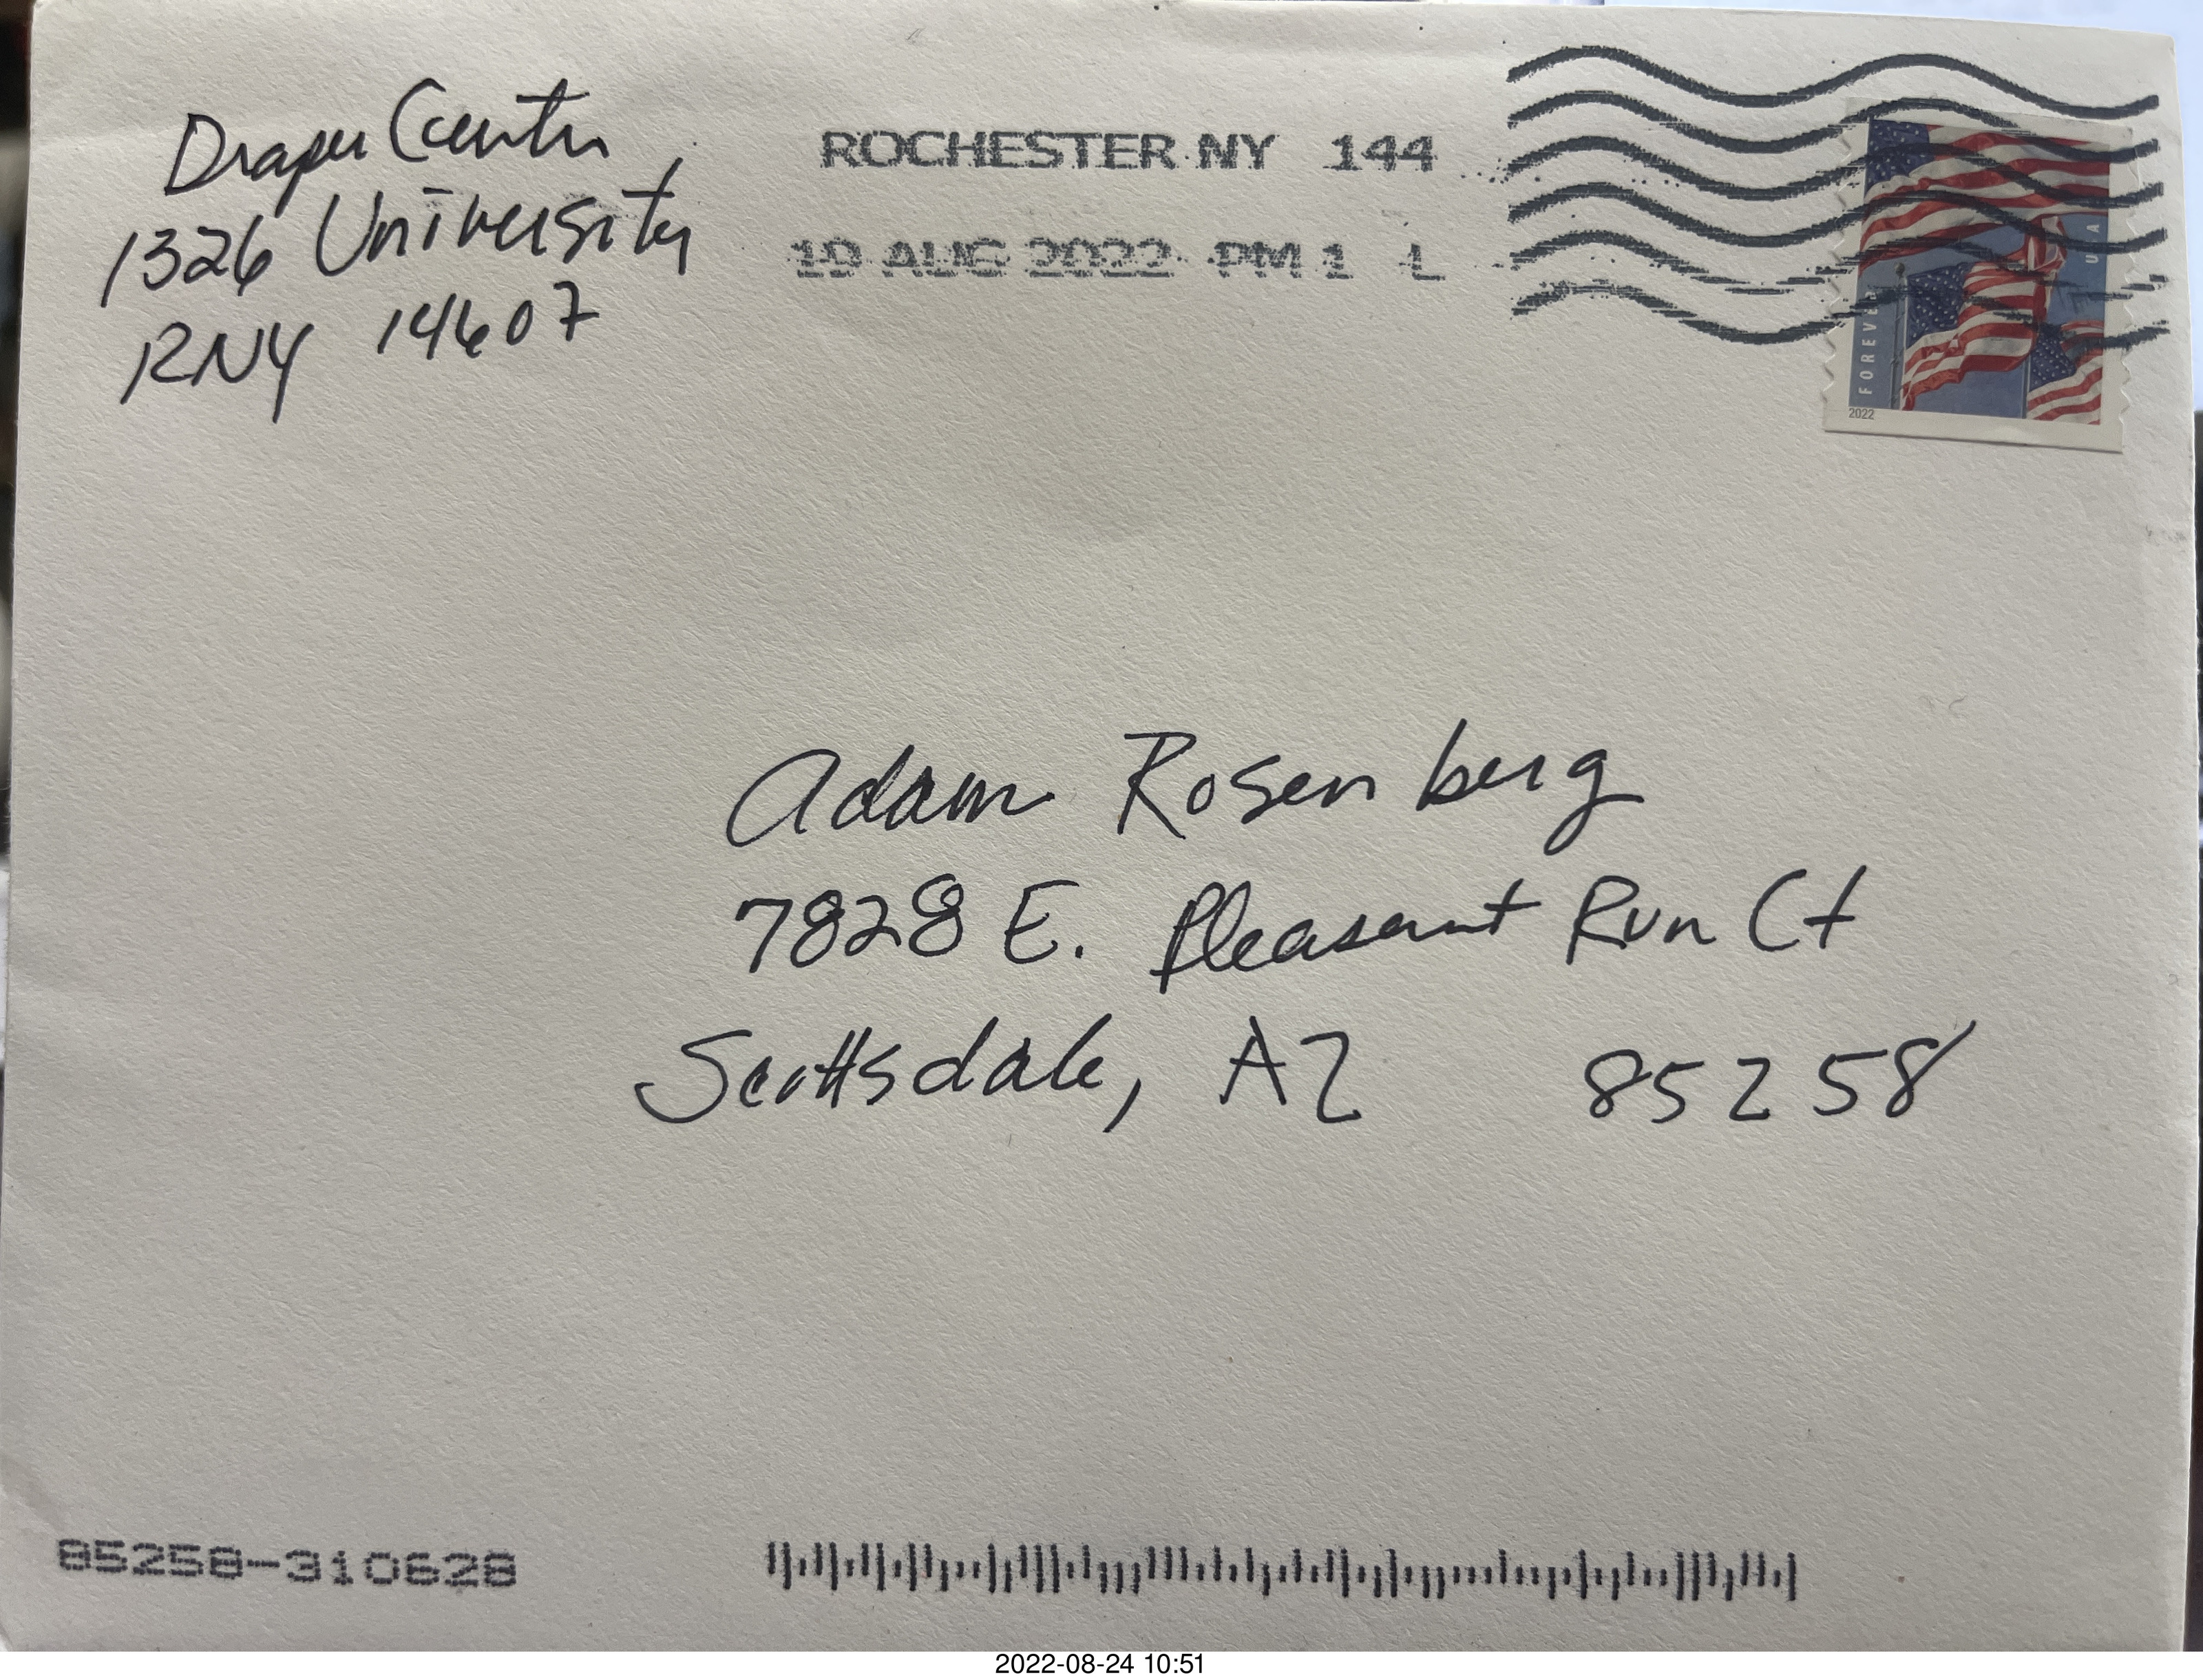 Draper Center
1326 University
RNY 14607
ROCHESTER NY 144
19 AUG 2022 PM 1 L
FOREVER
USA
2022
Adam Rosenberg
7828 E. Pleasant Run Ct
Scottsdale, AZ 85258
85258-310628
2022-08-24 10:51